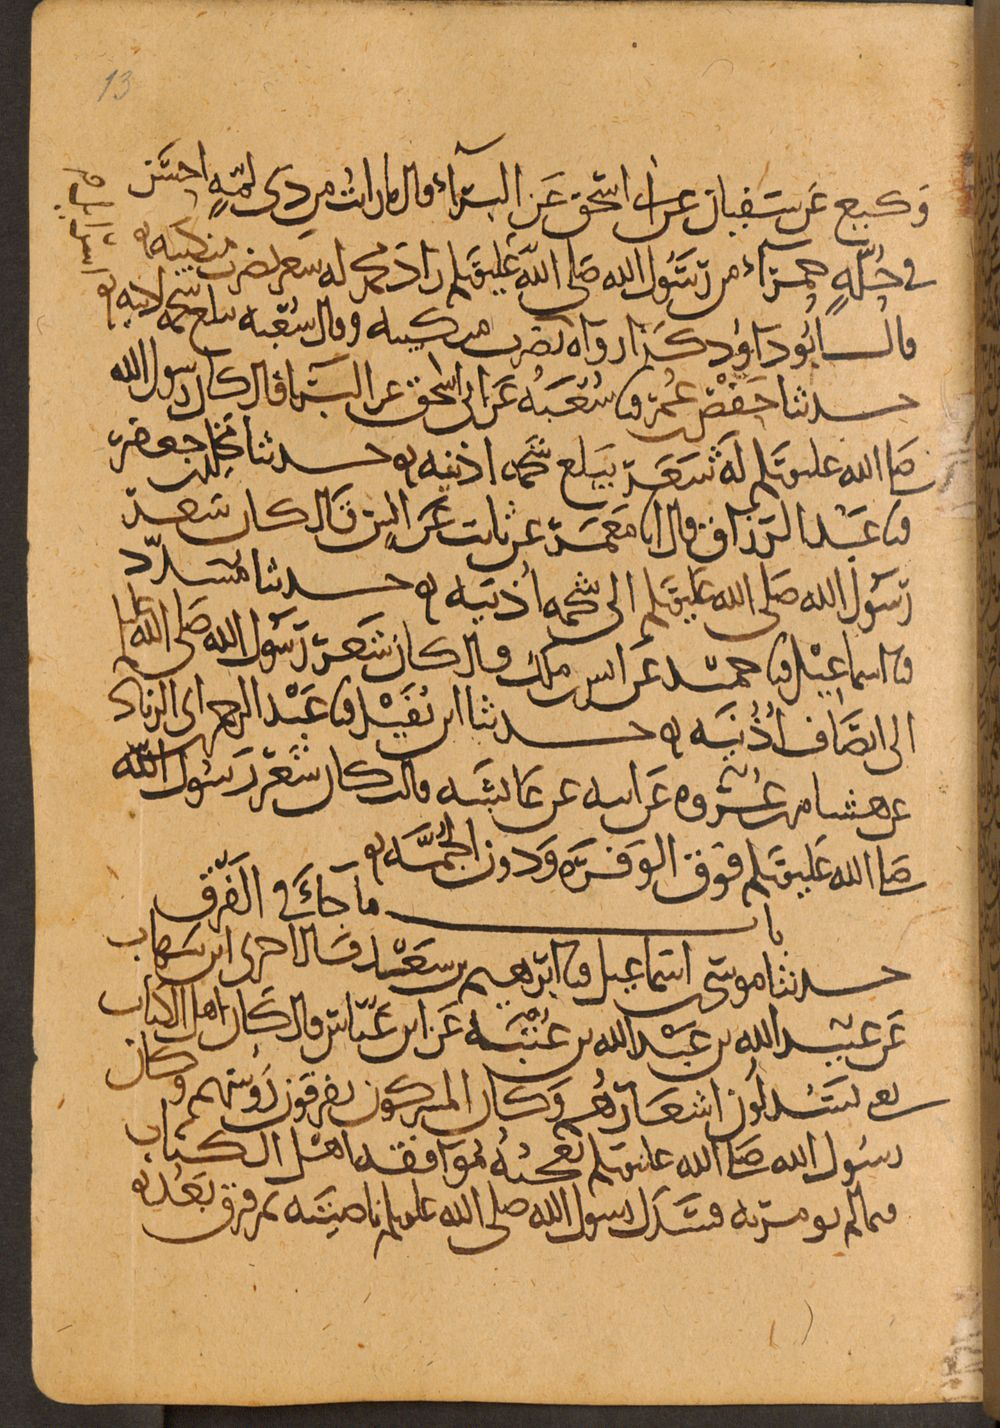 13
وكيع عن سفيان عن ابى اسحق عن البراء قال ما رايت من ذى لمة احسن
فى حلة حمرآء من رسول الله صلى الله عليه وسلم زاد محمد له شعر يضرب منكبيه
قال ابو داود كذا رواه يضرب منكبيه وقال شعبة يبلغ شحمة اذنيه
حدثنا حفص بن عمر نا شعبة عن ابى اسحق عن البراء قال كان رسول الله
صلى الله عليه وسلم له شعر يبلغ شحمة اذنيه حدثنا مخلد جعفر
نا عبد الرزاق قال انا معمر عن ثابت عن انس قال كان شعر
رسول الله صلى الله عليه وسلم الى شحمة اذنيه حدثنا مسدد
نا اسماعيل نا حميد عن انس بن ملك قال كان شعر رسول الله صلى الله عليه
الى انصاف اذنيه حدثنا ابن نفيل نا عبد الرحمن بن ابى الزناد
عن هشام بن عروه عن ابيه عن عائشه قالت كان شعر رسول الله
صلى الله عليه وسلم فوق الوفرة ودون الجمه
باب ما جاء فى الفرق
حدثنا موسى بن اسماعيل نا ابرهيم بن سعد قال اخبرنى ابن شهاب
عن عبيد الله بن عبد الله بن عتبة عن ابن عباس قال كان اهل الكتاب
يعنى يسدلون اشعارهم وكان المشركون يفرقون رؤسهم وكان
رسول الله صلى الله عليه وسلم تعجبه موافقة اهل الكتاب
فيما لم يومر به فسدل رسول الله صلى الله عليه وسلم ناصيته ثم فرق بعد